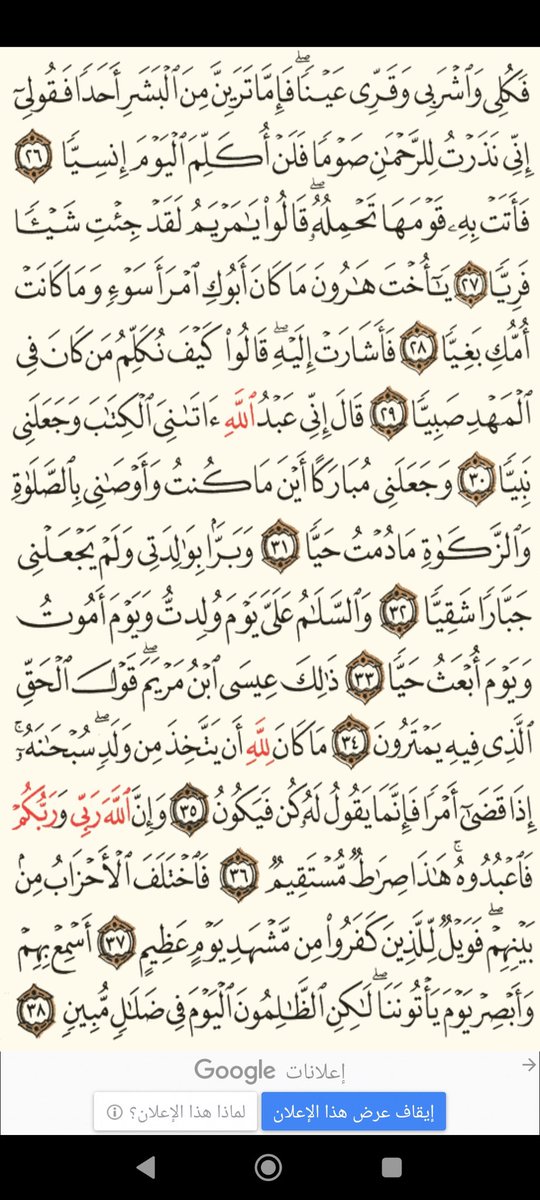 فَكُلِي وَٱشۡرَبِي وَقَرِّي عَيۡنٗاۖ فَإِمَّا تَرَيِنَّ مِنَ ٱلۡبَشَرِ أَحَدٗا فَقُولِيٓ
إِنِّي نَذَرۡتُ لِلرَّحۡمَٰنِ صَوۡمٗا فَلَنۡ أُكَلِّمَ ٱلۡيَوۡمَ إِنسِيّٗا ٢٦
فَأَتَتۡ بِهِۦ قَوۡمَهَا تَحۡمِلُهُۥۖ قَالُواْ يَٰمَرۡيَمُ لَقَدۡ جِئۡتِ شَيۡـٔٗا
فَرِيّٗا ٢٧ يَٰٓأُخۡتَ هَٰرُونَ مَا كَانَ أَبُوكِ ٱمۡرَأَ سَوۡءٖ وَمَا كَانَتۡ
أُمُّكِ بَغِيّٗا ٢٨ فَأَشَارَتۡ إِلَيۡهِۖ قَالُواْ كَيۡفَ نُكَلِّمُ مَن كَانَ فِي
ٱلۡمَهۡدِ صَبِيّٗا ٢٩ قَالَ إِنِّي عَبۡدُ ٱللَّهِ ءَاتَىٰنِيَ ٱلۡكِتَٰبَ وَجَعَلَنِي
نَبِيّٗا ٣٠ وَجَعَلَنِي مُبَارَكًا أَيۡنَ مَا كُنتُ وَأَوۡصَٰنِي بِٱلصَّلَوٰةِ
وَٱلزَّكَوٰةِ مَا دُمۡتُ حَيّٗا ٣١ وَبَرَّۢا بِوَٰلِدَتِي وَلَمۡ يَجۡعَلۡنِي
جَبَّارٗا شَقِيّٗا ٣٢ وَٱلسَّلَٰمُ عَلَيَّ يَوۡمَ وُلِدتُّ وَيَوۡمَ أَمُوتُ
وَيَوۡمَ أُبۡعَثُ حَيّٗا ٣٣ ذَٰلِكَ عِيسَى ٱبۡنُ مَرۡيَمَۖ قَوۡلَ ٱلۡحَقِّ
ٱلَّذِي فِيهِ يَمۡتَرُونَ ٣٤ مَا كَانَ لِلَّهِ أَن يَتَّخِذَ مِن وَلَدٖۖ سُبۡحَٰنَهُۥٓۚ
إِذَا قَضَىٰٓ أَمۡرٗا فَإِنَّمَا يَقُولُ لَهُۥ كُن فَيَكُونُ ٣٥ وَإِنَّ ٱللَّهَ رَبِّي وَرَبُّكُمۡ
فَٱعۡبُدُوهُۚ هَٰذَا صِرَٰطٞ مُّسۡتَقِيمٞ ٣٦ فَٱخۡتَلَفَ ٱلۡأَحۡزَابُ مِنۢ
بَيۡنِهِمۡۖ فَوَيۡلٞ لِّلَّذِينَ كَفَرُواْ مِن مَّشۡهَدِ يَوۡمٍ عَظِيمٍ ٣٧ أَسۡمِعۡ بِهِمۡ
وَأَبۡصِرۡ يَوۡمَ يَأۡتُونَنَاۖ لَٰكِنِ ٱلظَّٰلِمُونَ ٱلۡيَوۡمَ فِي ضَلَٰلٖ مُّبِينٖ ٣٨
إعلانات Google
إيقاف عرض هذا الإعلان
لماذا هذا الإعلان؟